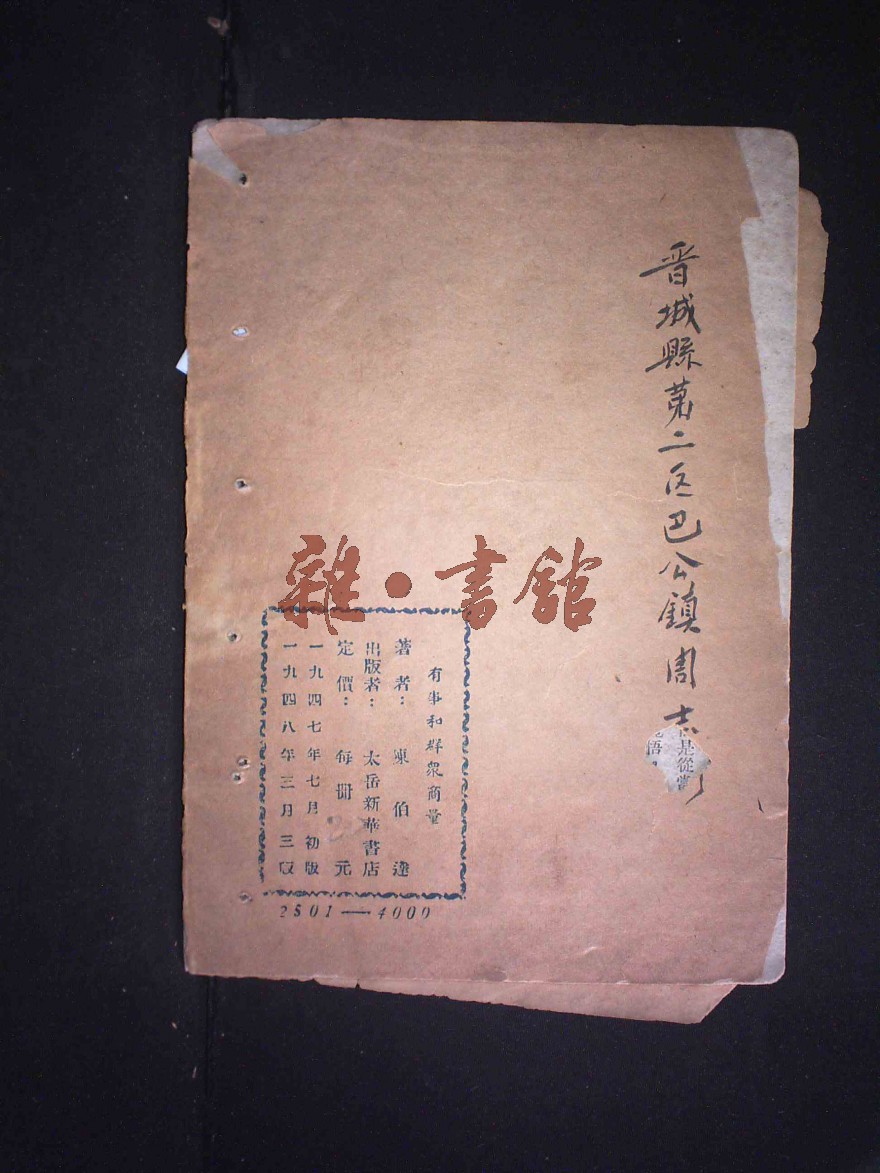 晋城縣第二区巴公鎮周志
是從
悟
雜·書舘
有事和群衆商量
著者：陳伯達
出版者：太岳新華書店
定價：每冊 元
一九四七年七月初版
一九四八年三月三版
2501—4000